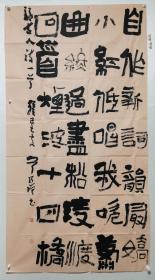 自作新詞韻最嬌
小紅低唱我吹簫
曲終過盡松陵
回首煙波十四橋
詩一首